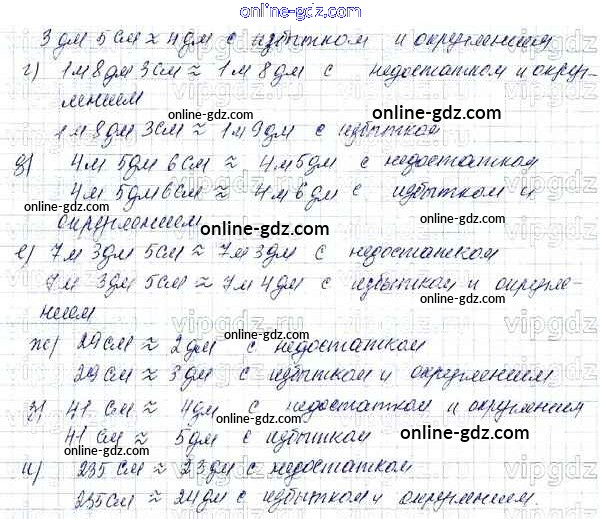 online-gdz.com
3 дм 5 см ≈ 4 дм с избытком и округлением
г) 1 м 8 дм 3 см ≈ 1 м 8 дм с недостатком и округ-
лением
online-gdz.com online-gdz.com
1 м 8 дм 3 см ≈ 1 м 9 дм с избытком
д) 4 м 5 дм 6 см ≈ 4 м 5 дм с недостатком
online-gdz.com
4 м 5 дм 6 см ≈ 4 м 6 дм с избытком и
online-gdz.com online-gdz.com
округлением
online-gdz.com
е) 7 м 3 дм 5 см ≈ 7 м 3 дм с недостатком
7 м 3 дм 5 см ≈ 7 м 4 дм с избытком и округле-
нием
vipgdz.com
online-gdz.com
ж) 29 см ≈ 2 дм с недостатком
29 см ≈ 3 дм с избытком и округлением
online-gdz.com
з) 41 см ≈ 4 дм с недостатком и округлением
41 см ≈ 5 дм с избытком
online-gdz.com
и) 235 см ≈ 23 дм с недостатком
online-gdz.com
235 см ≈ 24 дм с избытком и округлением.
online-gdz.com